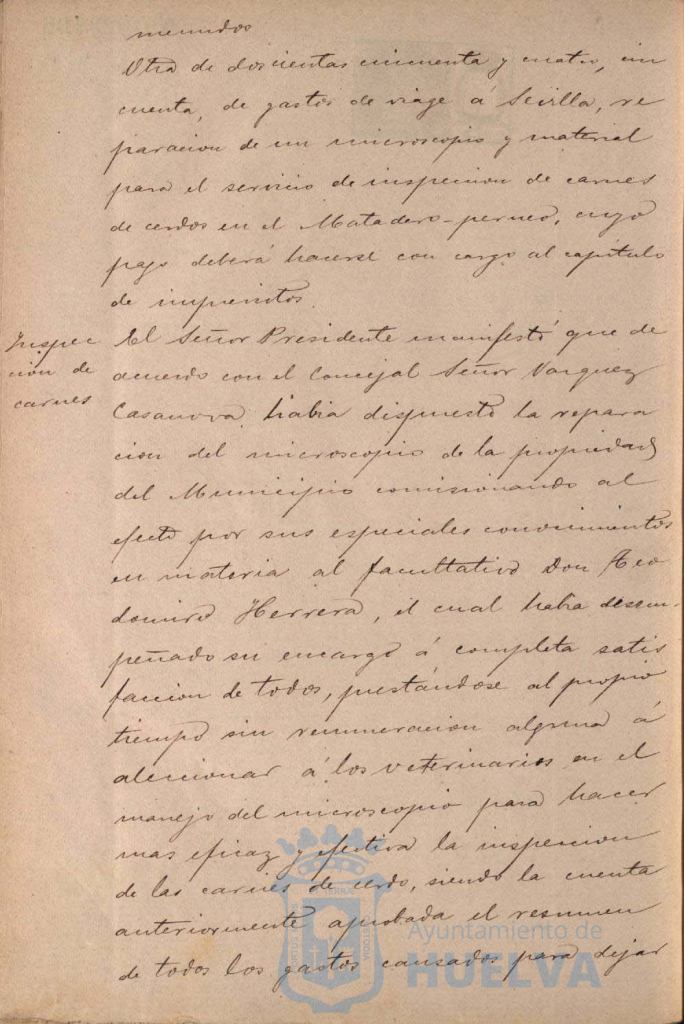 menudos
Otra de doscientas cincuenta y cuatro, cin
cuenta, de gastos de viage á Sevilla, re
paracion de un microscopio y material
para el servicio de inspeccion de carnes
de cerdos en el Matadero-perneo, cuyo
pago deberá hacerse con cargo al capítulo
de imprevistos.
Inspec
cion de
carnes
El Señor Presidente manifestó que de
acuerdo con el Concejal Señor Vazquez
Casanova habia dispuesto la repara
cion del microscopio de la propiedad
del Municipio comisionando al
efecto por sus especiales conocimientos
en materia al facultativo Don Teo
domiro Herrera, el cual habia desem-
peñado su encargo á completa satis
faccion de todos, prestándose al propio
tiempo sin remuneracion alguna á
aleccionar á los veterinarios en el
manejo del microscopio para hacer
mas eficaz y efectiva la inspeccion
de las carnes de cerdo, siendo la cuenta
anteriormente aprobada el resumen
de todos los gastos causados para dejar
Ayuntamiento de
HUELVA